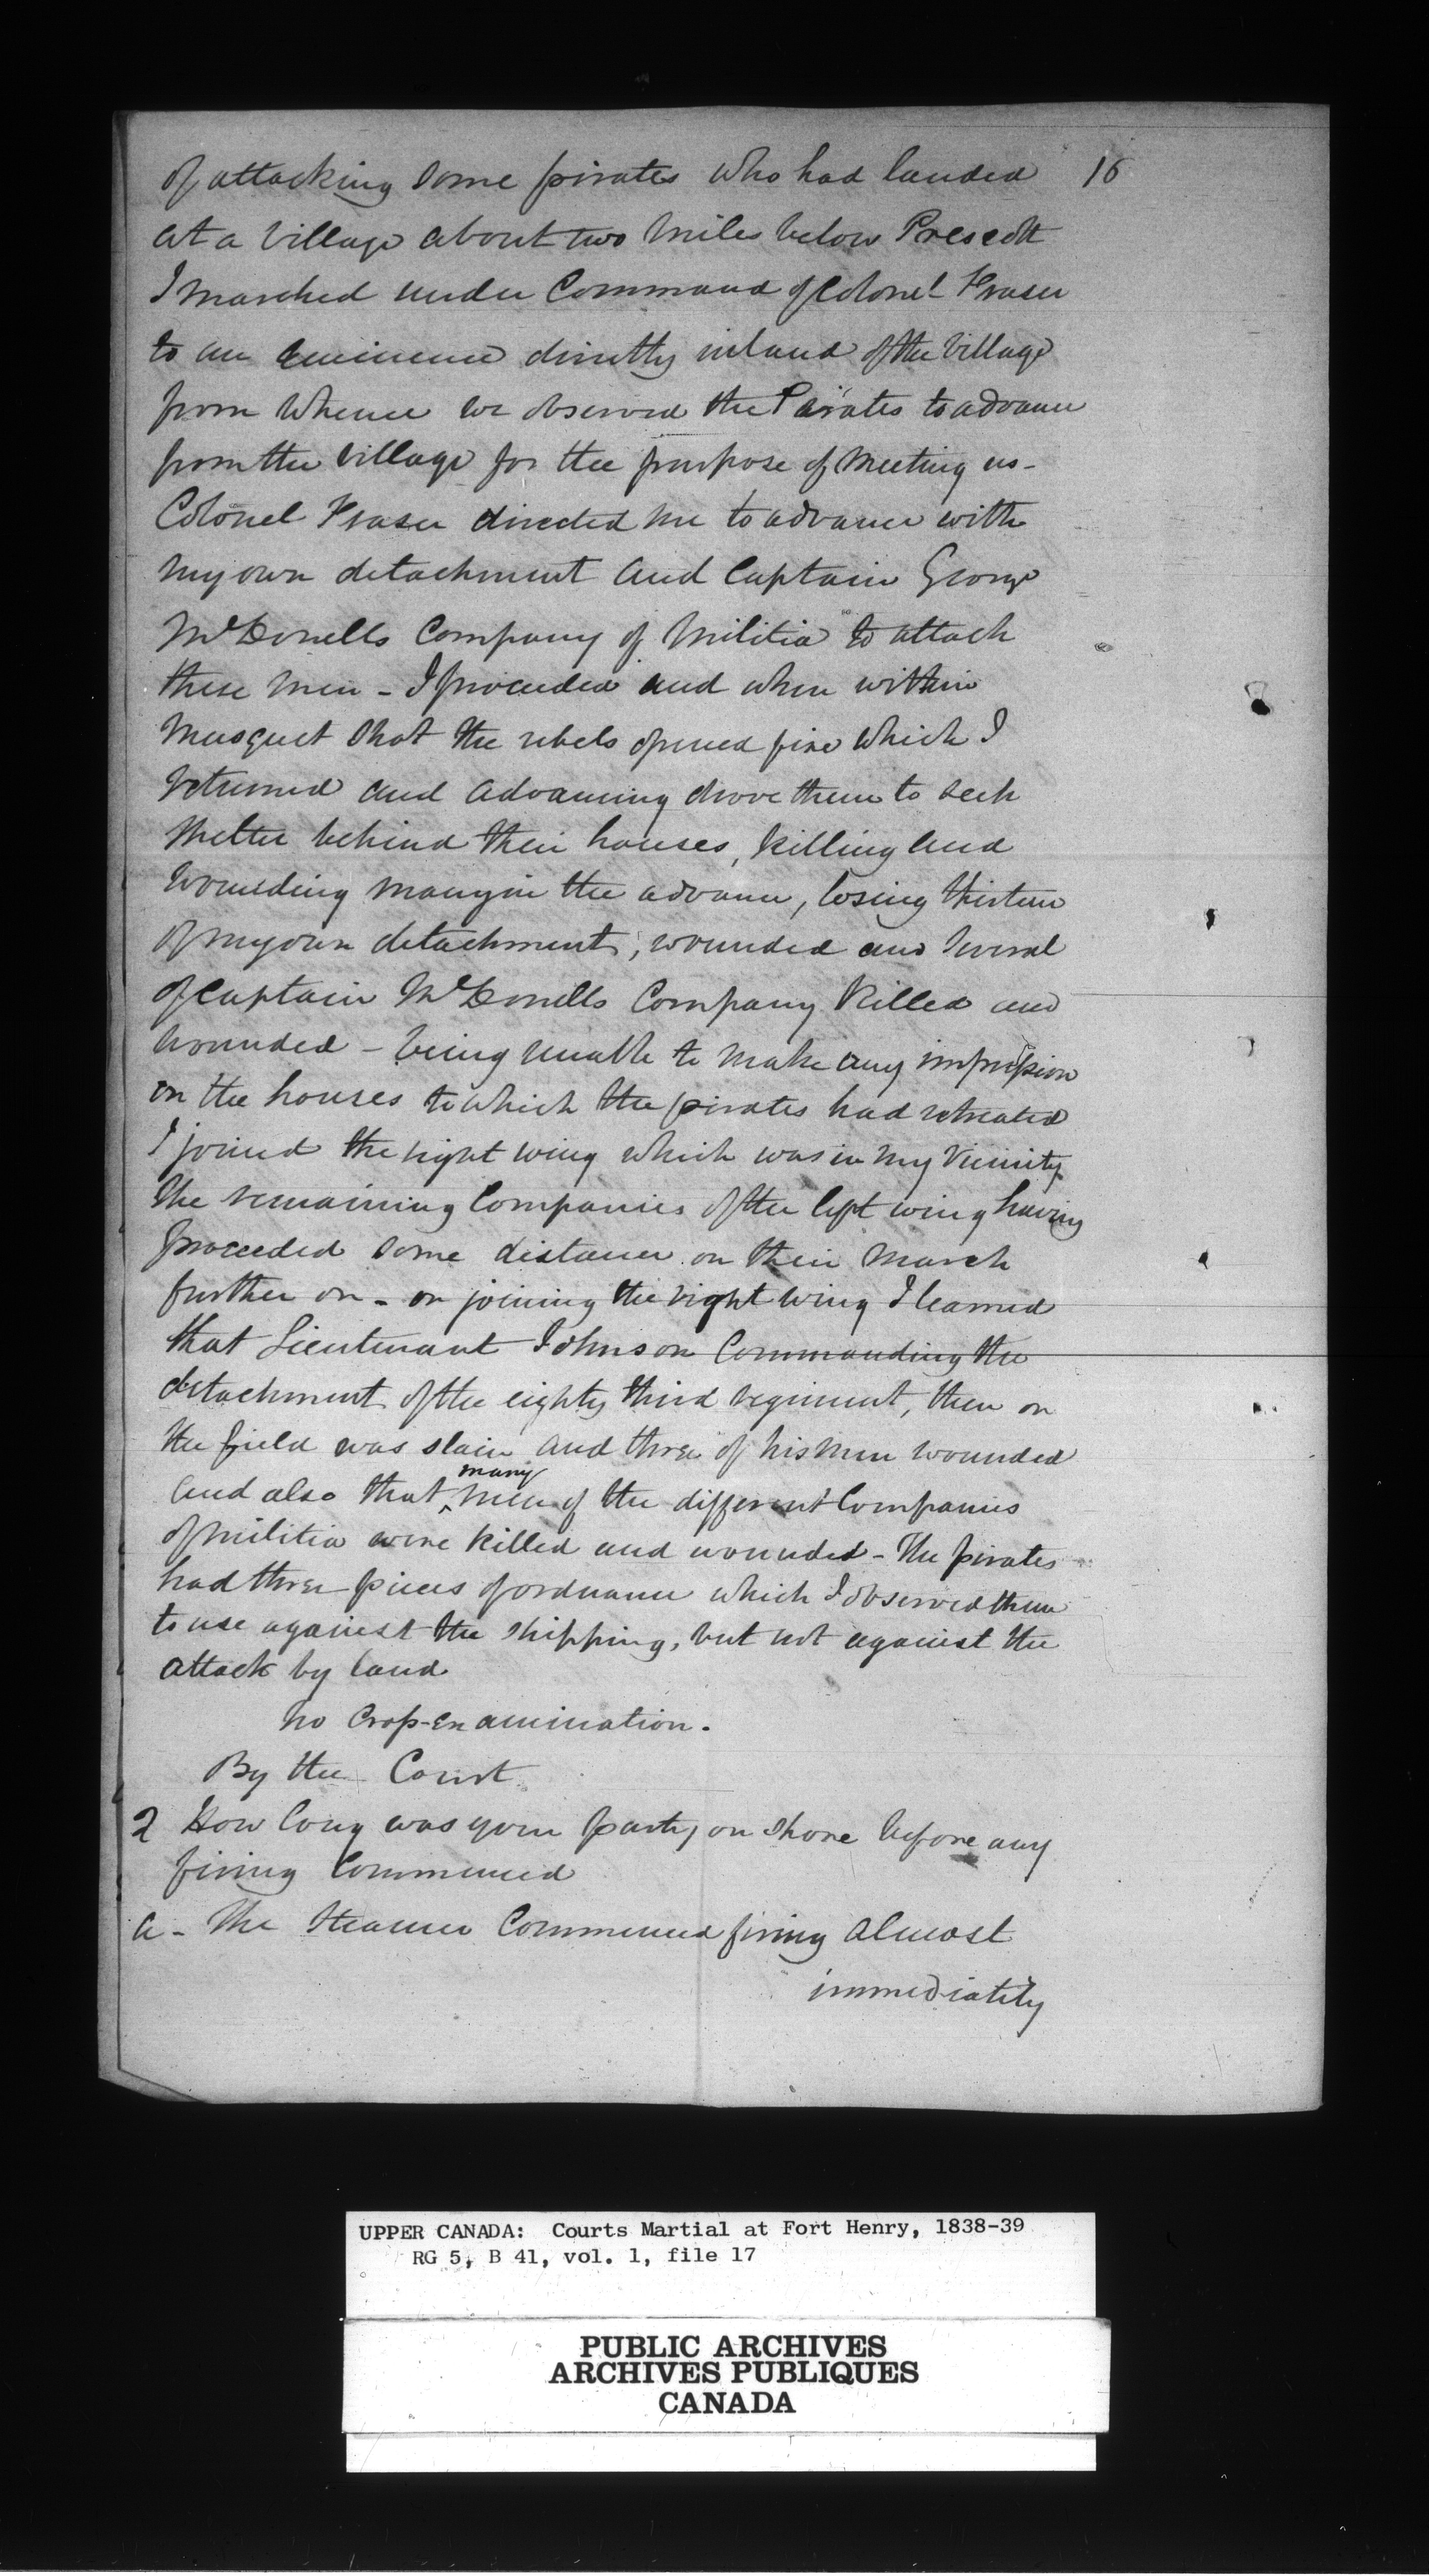 of attacking some pirates who had landed 16
at a Village about two Miles below Prescott
I marched under Command of Colonel Fraser
to an eminence directly inland of the Village
from Whence we observed the Pirates to advance
from the Village for the purpose of Meeting us -
Colonel Fraser directed me to advance with
My own detachment and Captain George
McDonells Company of Militia to attack
these men - I proceeded and when within
Musquet Shot the rebels opened fire which I
returned and advancing drove them to seek
Shelter behind their houses, killing and
Wounding many in the advance, losing thirteen
of my own detachment, wounded and Several
of Captain McDonells Company Killed and
wounded - being unable to make any impression
on the houses to which the pirates had retreated
I joined the right wing which was in my Vicinity
the remaining Companies of the left wing having
proceeded some distance on their March
further on - on joining the right wing I learned
that Lieutenant Johnson Commanding the
detachment of the eighty third regiment, then on
the field was slain and three of his Men wounded
and also that many Men of the different Companies
of Militia were killed and wounded - The pirates
had three pieces of ordnance which I observed them
to use against the Shipping, but not against the
attack by land
No Cross-Examination.
By the Court
2 How long was your party on Shore before any
firing Commenced
a - The Steamer Commenced firing almost
immediately
UPPER CANADA: Courts Martial at Fort Henry, 1838-39
RG 5, B 41, vol. 1, file 17
PUBLIC ARCHIVES
ARCHIVES PUBLIQUES
CANADA